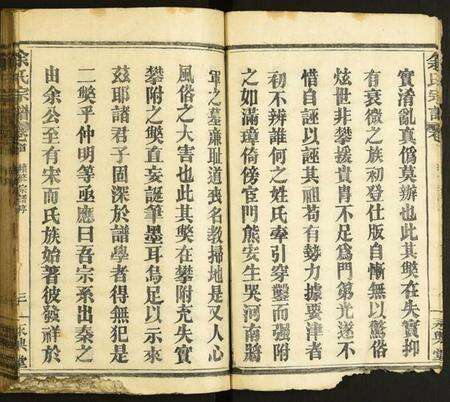 余氏宗譜 卷
實淆亂真僞莫辦也此其獘在失實抑
有衰微之族初登仕版自慚無以驚俗
炫世非攀援貴冑不足爲門第光遂不
惜自誣以誣其祖苟有勢力據要津者
初不辨誰何之姓氏牽引穿鑿而强附
之如滿璋倚傍宦門熊安生哭河南將
軍之墓廉耻道喪名教掃地是又人心
風俗之大害也此其獘在攀附充失實
攀附之獘直妄誕筆墨耳烏足以示來
茲耶諸君子固深於譜學者得無犯是
二獘乎仲明等亟應曰吾宗系出秦之
由余公至有宋而氏族始著彼發祥於
余氏宗譜 卷首
三
永興堂
永興堂